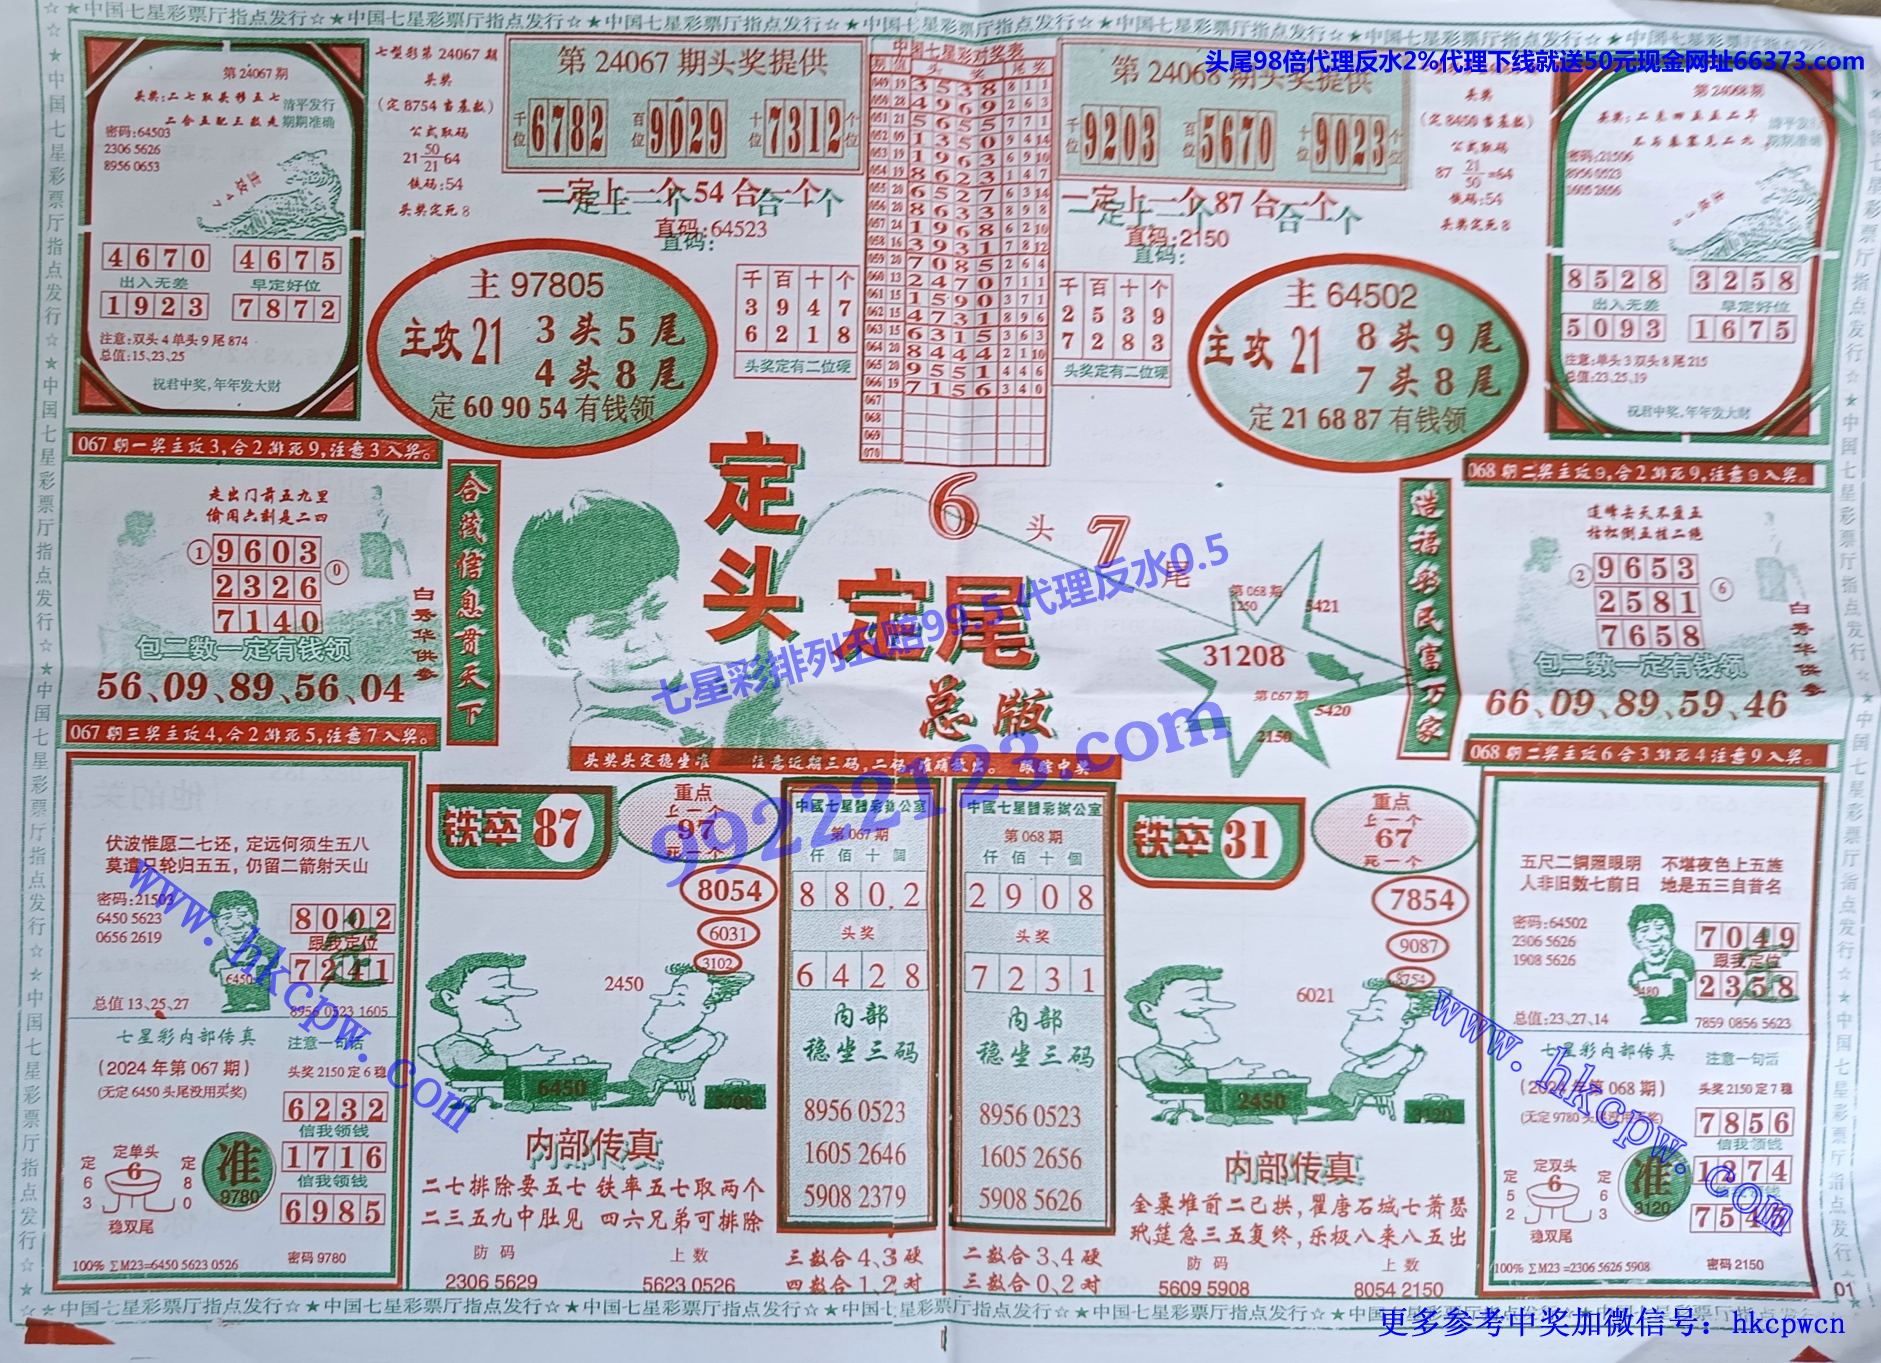 ☆★中国七星彩票厅指点发行☆★中国七星彩票厅指点发行☆★中国七星彩票厅指点发行☆
头尾98倍代理反水2%代理下线就送50元现金网址66373.com
第24067期
清平发行
期期准确
密码:64503
2306 5626
8956 0653
4670 4675
出入无差 早定好位
1923 7872
注意:双头4单头9尾874
总值:15、23、25
祝君中奖,年年发大财
七星彩第24067期
头奖
(定8754当基数)
公式取码
21 50/21 64
铁码:54
头奖定死8
第24067期头奖提供
千位 6782 百位 9029 十位 7312 个位
一定上一个54合一个
直码:64523
主97805
主攻21
3头5尾
4头8尾
定609054有钱领
千百十个
3947
6218
头奖定有二位硬
中国七星彩对奖表
期 值 头奖 尾奖
049 19 3538 8 1 1
050 28 4969 2 6 3
051 21 5655 7 7 1
052 09 1350 9 4 14
053 19 1963 6 9 10
054 19 8623 1 4 7
055 20 6527 6 3 14
056 20 8633 8 9 8
057 24 1968 6 2 10
058 16 3931 7 8 12
059 20 7085 2 6 4
060 13 2470 7 1 1
061 15 1590 3 7 1
062 15 4731 8 9 6
063 15 6315 3 6 3
064 20 8444 2 1 10
065 20 9551 4 4 6
066 19 7156 3 4 0
067
068
069
070
第24068期头奖提供
千位 9203 百位 5670 十位 9023 个位
一定上一个87合一个
直码:2150
千百十个
2539
7283
头奖定有二位硬
主64502
主攻21
8头9尾
7头8尾
定216887有钱领
头奖
(定8450当基数)
公式取码
87 21/50=64
铁码:54
头奖定死8
第24068期
密码:21506
8956 0523
1605 2656
8528 3258
出入无差 早定好位
5093 1675
注意:单头3双头8尾215
总值:23、25、19
祝君中奖,年年发大财
067期一奖主攻3,合2排死9,注意3入奖。
走出门前五九里
偷闲六剩是二四
① 9603 ⓪
2326
7140
包二数一定有钱领
56、09、89、56、04
白秀华供参
067期三奖主攻4,合2排死5,注意7入奖。
合茂信息贯天下
定头
定尾
总版
6头7尾
第068期
1250
5421
31208
第067期
5420
2150
造福彩民富万家
七星彩排列五赔99.5代理反水0.5
99222123.com
068期二奖主攻9,合2排死9,注意9入奖。
连峰去天不盈五
枯松倒五挂二绝
② 9653 ⑥
2581
7658
包二数一定有钱领
66、09、89、59、46
白秀华供参
068期二奖主攻6合3排死4注意9入奖。
伏波惟愿二七还，定远何须生五八
莫遣只轮归五五，仍留二箭射天山
密码:21503
6450 5623
0656 2619
6450
8002
跟我定位
7241
总值13、25、27
8956 0523 1605
七星彩内部传真
注意一句话
(2024年第067期)
头奖2150定6稳
(无定6450头尾没用买奖)
6232
信我领钱
1716
信我领钱
6985
定单头
定63 6 定80
稳双尾
准
9780
100% ∑M23=6450 5623 0526
密码9780
铁卒87
重点
上一个
97
死一个
8054
6031
3102
2450
6450
内部传真
二七排除要五七 铁率五七取两个
二三五九中肚见 四六兄弟可排除
防码 上数
2306 5629 5623 0526
中國七星體彩辦公室
第067期
仟佰十個
8802
头奖
6428
内部
稳坐三码
8956 0523
1605 2646
5908 2379
三数合4、3硬
四数合1、2对
中國七星體彩辦公室
第068期
仟佰十個
2908
头奖
7231
内部
稳坐三码
8956 0523
1605 2656
5908 5626
二数合3、4硬
三数合0、2对
铁卒31
重点
上一个
67
死一个
7854
9087
8754
6021
2450
3120
内部传真
金粟堆前二已拱,瞿唐石城七萧瑟
玳筵急三五复终,乐极八来八五出
防码 上数
5609 5908 8054 2150
五尺二铜照眼明 不堪夜色上五旌
人非旧数七前日 地是五三自昔名
密码:64502
2306 5626
1908 5626
7049
跟我定位
2358
总值:23、27、14
7859 0856 5623
七星彩内部传真
注意一句话
(2024年第068期)
头奖2150定7稳
7856
信我领钱
1874
定双头
定52 6 定63
稳双尾
准
3120
100% ∑M23=2306 5626 5908
密码2150
01
www.hkcpw.com
www.hkcpw.com
☆★中国七星彩票厅指点发行☆★中国七星彩票厅指点发行☆★中国七星彩票厅指点发行☆
更多参考中奖加微信号：hkcpwcn